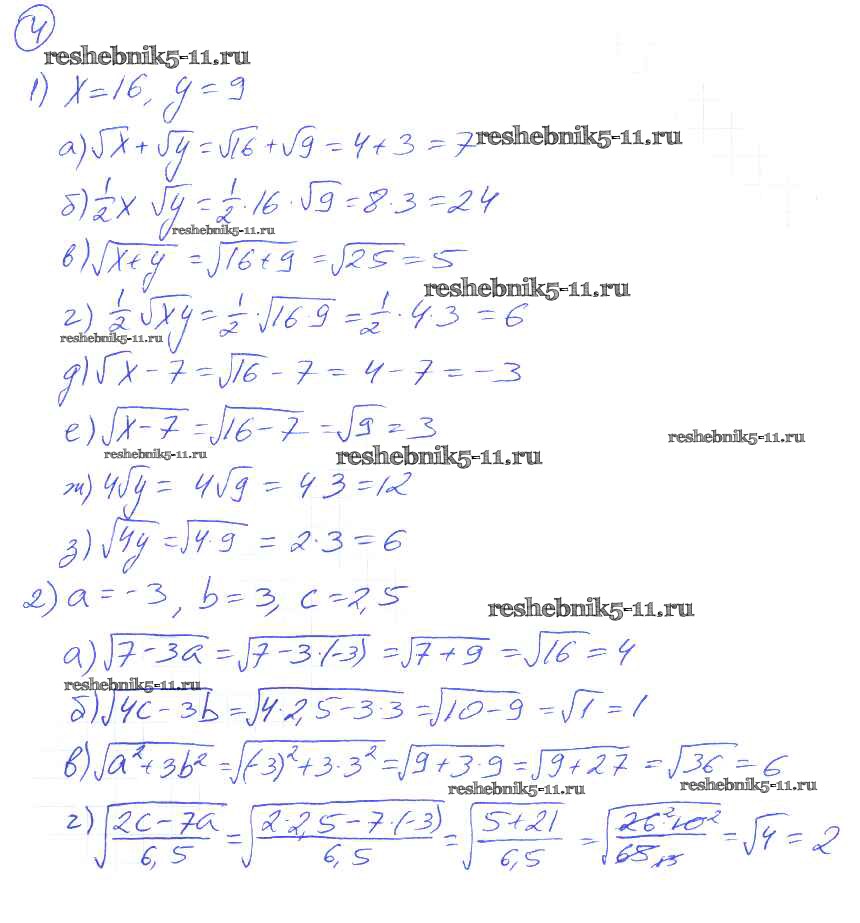 4
reshebnik5-11.ru
1) x=16, y=9
а) √x + √y = √16 + √9 = 4 + 3 = 7 reshebnik5-11.ru
б) 1/2 x √y = 1/2 · 16 · √9 = 8 · 3 = 24
reshebnik5-11.ru
в) √(x+y) = √(16+9) = √25 = 5
reshebnik5-11.ru
г) 1/2 √(xy) = 1/2 · √(16·9) = 1/2 · 4·3 = 6
reshebnik5-11.ru
д) √x - 7 = √16 - 7 = 4 - 7 = -3
е) √(x-7) = √(16-7) = √9 = 3
reshebnik5-11.ru
reshebnik5-11.ru reshebnik5-11.ru
ж) 4√y = 4√9 = 4 3 = 12
з) √(4y) = √(4·9) = 2·3 = 6
2) a = -3, b = 3, c = 2,5
reshebnik5-11.ru
а) √(7-3a) = √(7-3·(-3)) = √(7+9) = √16 = 4
reshebnik5-11.ru
б) √(4c-3b) = √(4·2,5-3·3) = √(10-9) = √1 = 1
в) √(a²+3b²) = √((-3)²+3·3²) = √(9+3·9) = √(9+27) = √36 = 6
reshebnik5-11.ru reshebnik5-11.ru
г) √((2c-7a)/6,5) = √((2·2,5-7·(-3))/6,5) = √((5+21)/6,5) = = √4 = 2